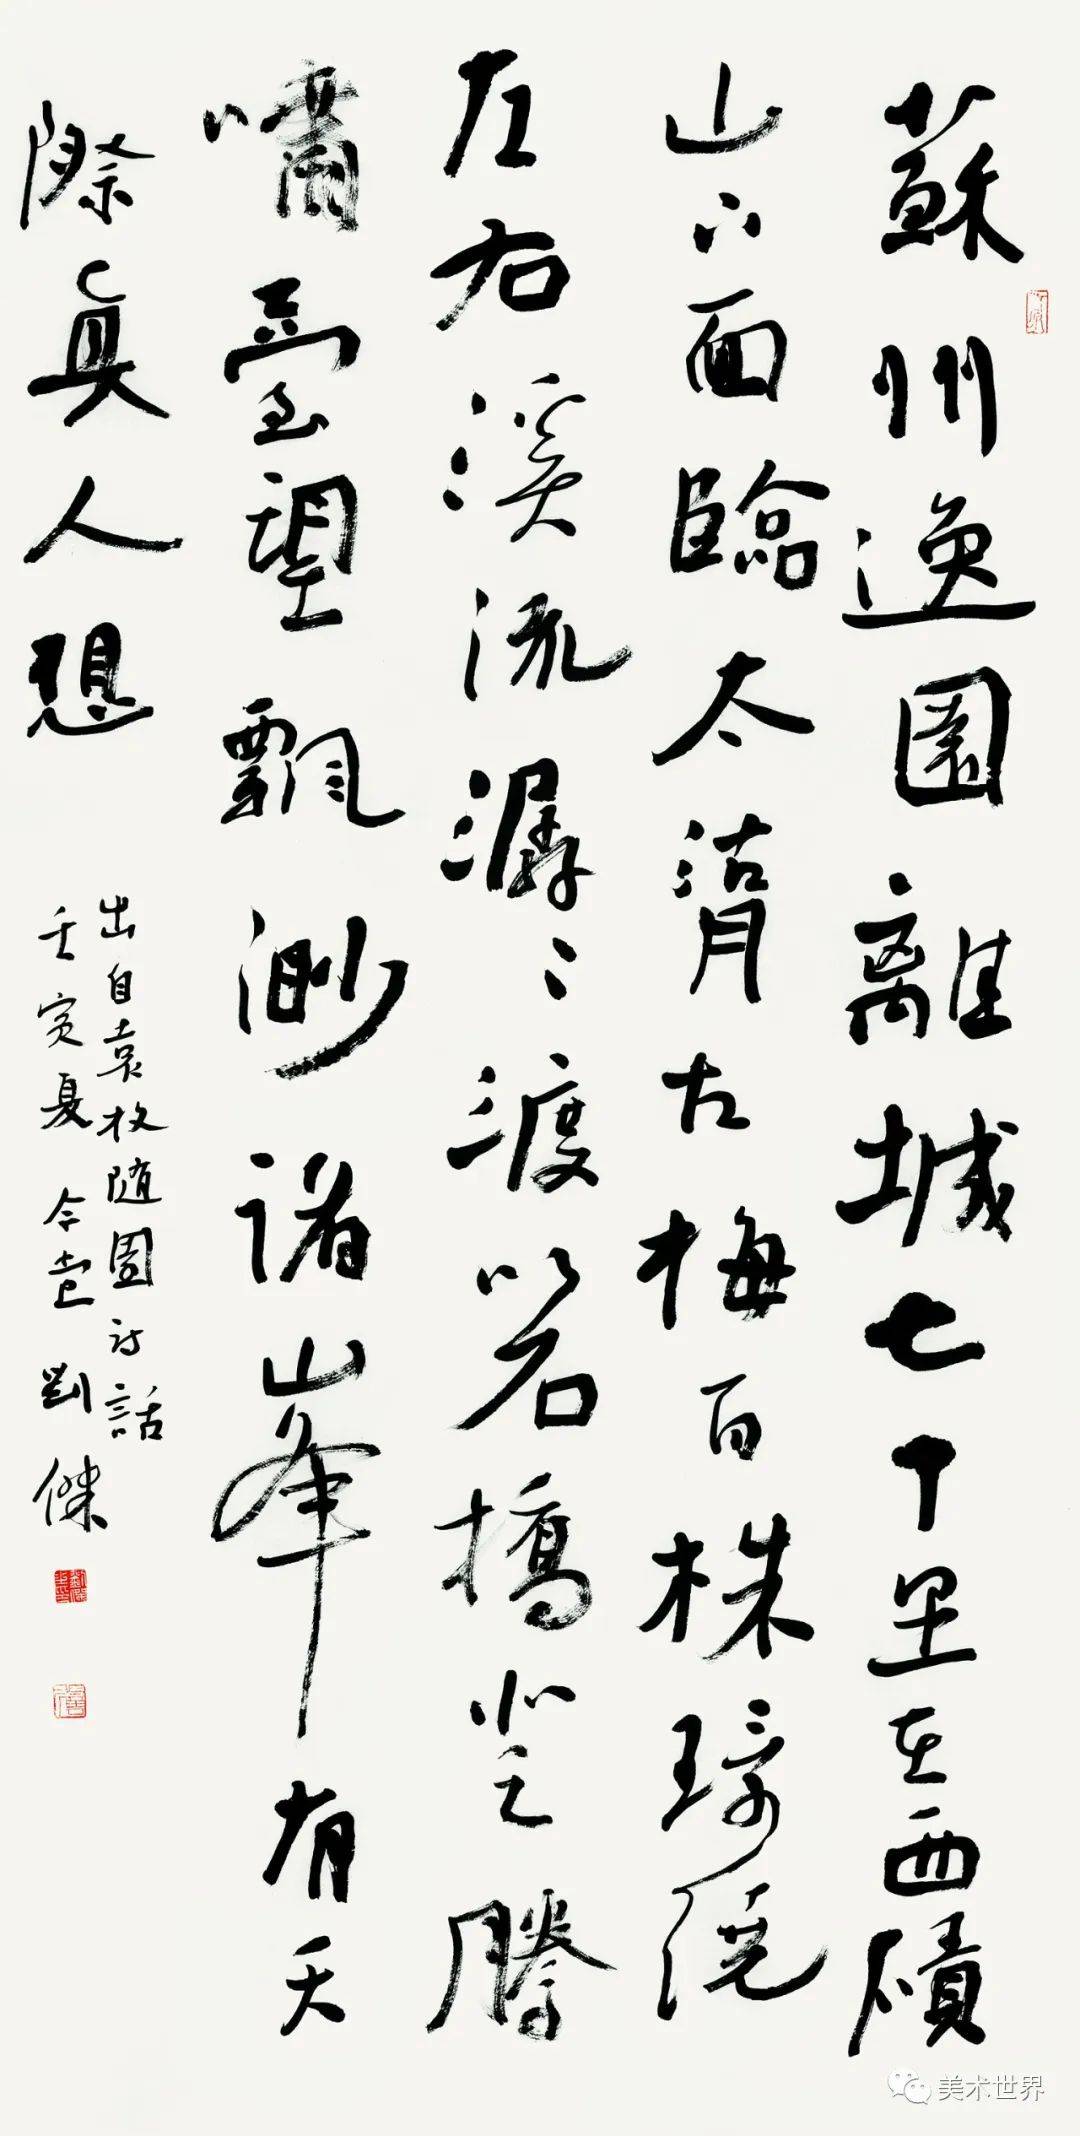 蘇州逸園離城七十里在西磧
山下面臨太湖古梅百株環繞
左右溪流潺〻渡以石橋登騰
嘯臺望飄渺諸峰有天
際真人想
出自袁枚随園诗話
壬寅夏 令堂 劉傑
美术世界